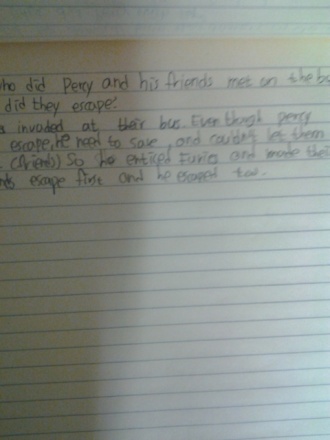 ho did Percy and his friends met on the b
did they escape?
s invaded at their bus. Even though percy
escape, he need to save, and couldn't let them
(friends) So he enticed Furies and made thei
nds escape first and he escaped too.